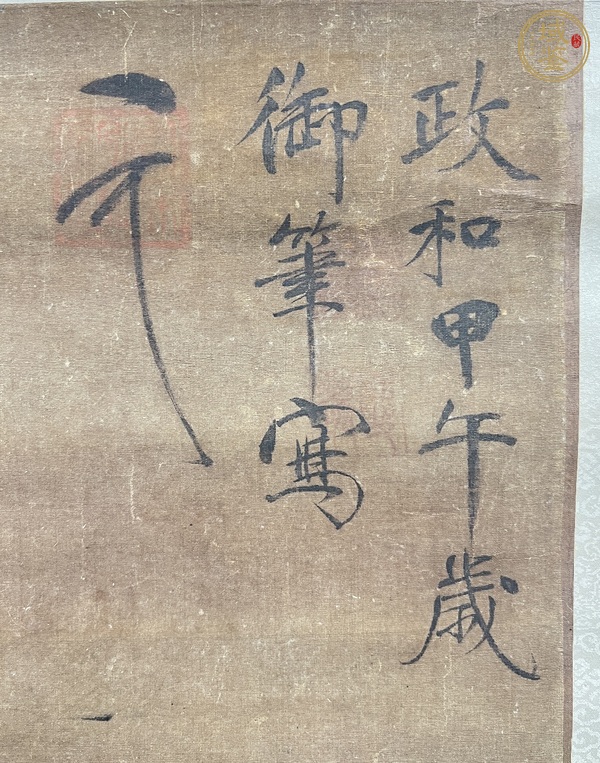 政和甲午歲
御筆寫